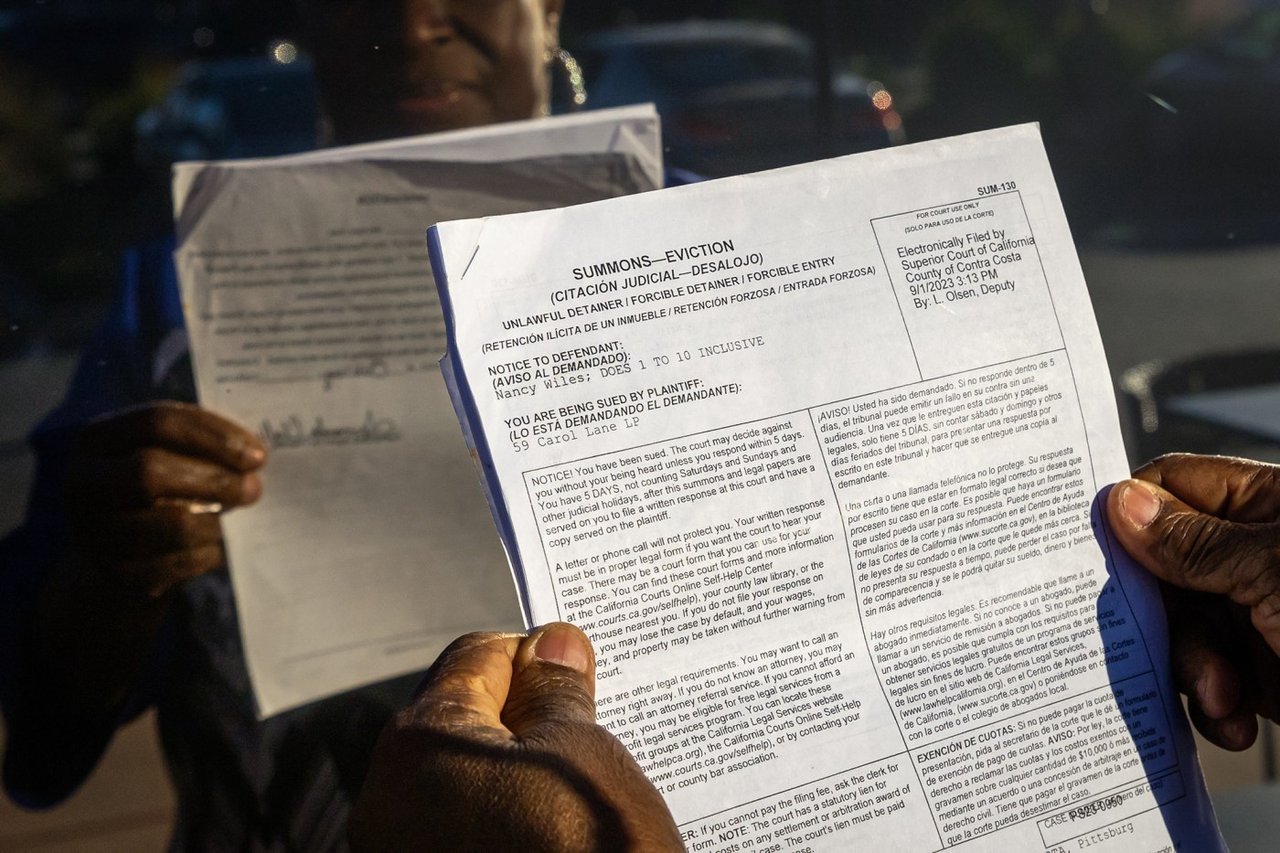 SUM-130
SUMMONS—EVICTION
(CITACIÓN JUDICIAL—DESALOJO)
UNLAWFUL DETAINER / FORCIBLE DETAINER / FORCIBLE ENTRY
(RETENCIÓN ILÍCITA DE UN INMUEBLE / RETENCIÓN FORZOSA / ENTRADA FORZOSA)
FOR COURT USE ONLY
(SOLO PARA USO DE LA CORTE)
Electronically Filed by
Superior Court of California
County of Contra Costa
9/1/2023 3:13 PM
By: L. Olsen, Deputy
NOTICE TO DEFENDANT:
(AVISO AL DEMANDADO):
Nancy Wiles; DOES 1 TO 10 INCLUSIVE
YOU ARE BEING SUED BY PLAINTIFF:
(LO ESTÁ DEMANDANDO EL DEMANDANTE):
59 Carol Lane LP
NOTICE! You have been sued. The court may decide against
you without your being heard unless you respond within 5 days.
You have 5 DAYS, not counting Saturdays and Sundays and
other judicial holidays, after this summons and legal papers are
served on you to file a written response at this court and have a
copy served on the plaintiff.
A letter or phone call will not protect you. Your written response
must be in proper legal form if you want the court to hear your
case. There may be a court form that you can use for your
response. You can find these court forms and more information
at the California Courts Online Self-Help Center
www.courts.ca.gov/selfhelp), your county law library, or the
rthouse nearest you. If you do not file your response on
, you may lose the case by default, and your wages,
ey, and property may be taken without further warning from
court.
ere are other legal requirements. You may want to call an
torney right away. If you do not know an attorney, you may
nt to call an attorney referral service. If you cannot afford an
, you may be eligible for free legal services from a
ofit legal services program. You can locate these
groups at the California Legal Services website
awhelpca.org), the California Courts Online Self-Help
www.courts.ca.gov/selfhelp), or by contacting your
rt or county bar association.
ER: If you cannot pay the filing fee, ask the clerk for
r form. NOTE: The court has a statutory lien for
costs on any settlement or arbitration award of
il case. The court's lien must be paid
¡AVISO! Usted ha sido demandado. Si no responde dentro de 5
días, el tribunal puede emitir un fallo en su contra sin una
audiencia. Una vez que le entreguen esta citación y papeles
legales, solo tiene 5 DÍAS, sin contar sábado y domingo y otros
días feriados del tribunal, para presentar una respuesta por
escrito en este tribunal y hacer que se entregue una copia al
demandante.
Una carta o una llamada telefónica no lo protege. Su respuesta
por escrito tiene que estar en formato legal correcto si desea que
procesen su caso en la corte. Es posible que haya un formulario
que usted pueda usar para su respuesta. Puede encontrar estos
formularios de la corte y más información en el Centro de Ayuda
de las Cortes de California (www.sucorte.ca.gov), en la biblioteca
de leyes de su condado o en la corte que le quede más cerca. Si
no presenta su respuesta a tiempo, puede perder el caso por falta
de comparecencia y se le podrá quitar su sueldo, dinero y bienes
sin más advertencia.
Hay otros requisitos legales. Es recomendable que llame a un
abogado inmediatamente. Si no conoce a un abogado, puede
llamar a un servicio de remisión a abogados. Si no puede pagar a
un abogado, es posible que cumpla con los requisitos para
obtener servicios legales gratuitos de un programa de servicios
legales sin fines de lucro. Puede encontrar estos grupos sin fines
de lucro en el sitio web de California Legal Services,
(www.lawhelpca.org), en el Centro de Ayuda de las Cortes
de California, (www.sucorte.ca.gov) o poniéndose en contacto
con la corte o el colegio de abogados local.
EXENCIÓN DE CUOTAS: Si no puede pagar la cuota de
presentación, pida al secretario de la corte que le dé un formulario
de exención de pago de cuotas. AVISO: Por ley, la corte tiene
derecho a reclamar las cuotas y los costos exentos con un
gravamen sobre cualquier cantidad de $10,000 ó más recibida
mediante un acuerdo o una concesión de arbitraje en un caso de
derecho civil. Tiene que pagar el gravamen de la corte antes de
que la corte pueda desestimar el caso.
CASE
PS23-0990
TA, Pittsburg